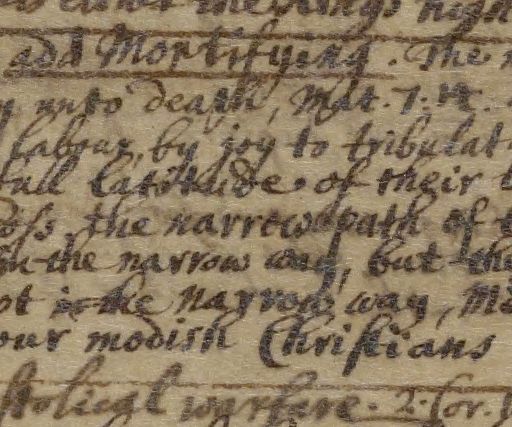 add Mortifying. The
unto death, Mat. 7. 14.
labour, by joy to tribulat
full latitude of their
the narrow path of
the narrow way, but the
ot is the narrow way, M
our modish Christians
stolical warfare. 2. Cor.